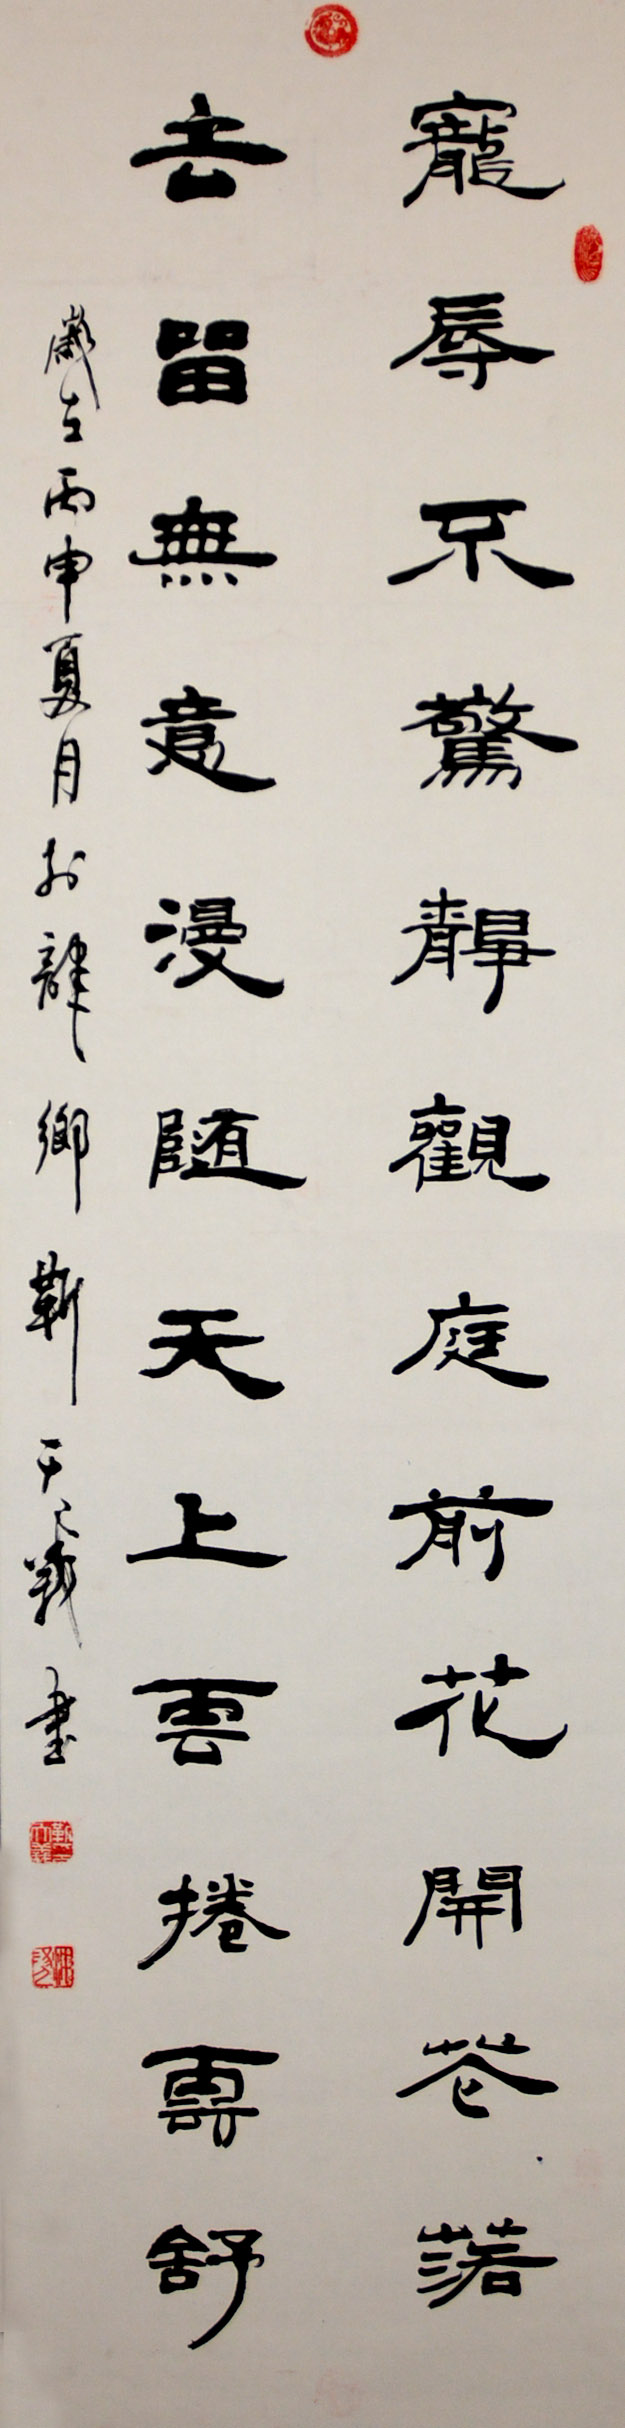 寵辱不驚靜觀庭前花開花落
去留無意漫隨天上雲捲雲舒
歲在丙申夏月於肆鄉靳天義書